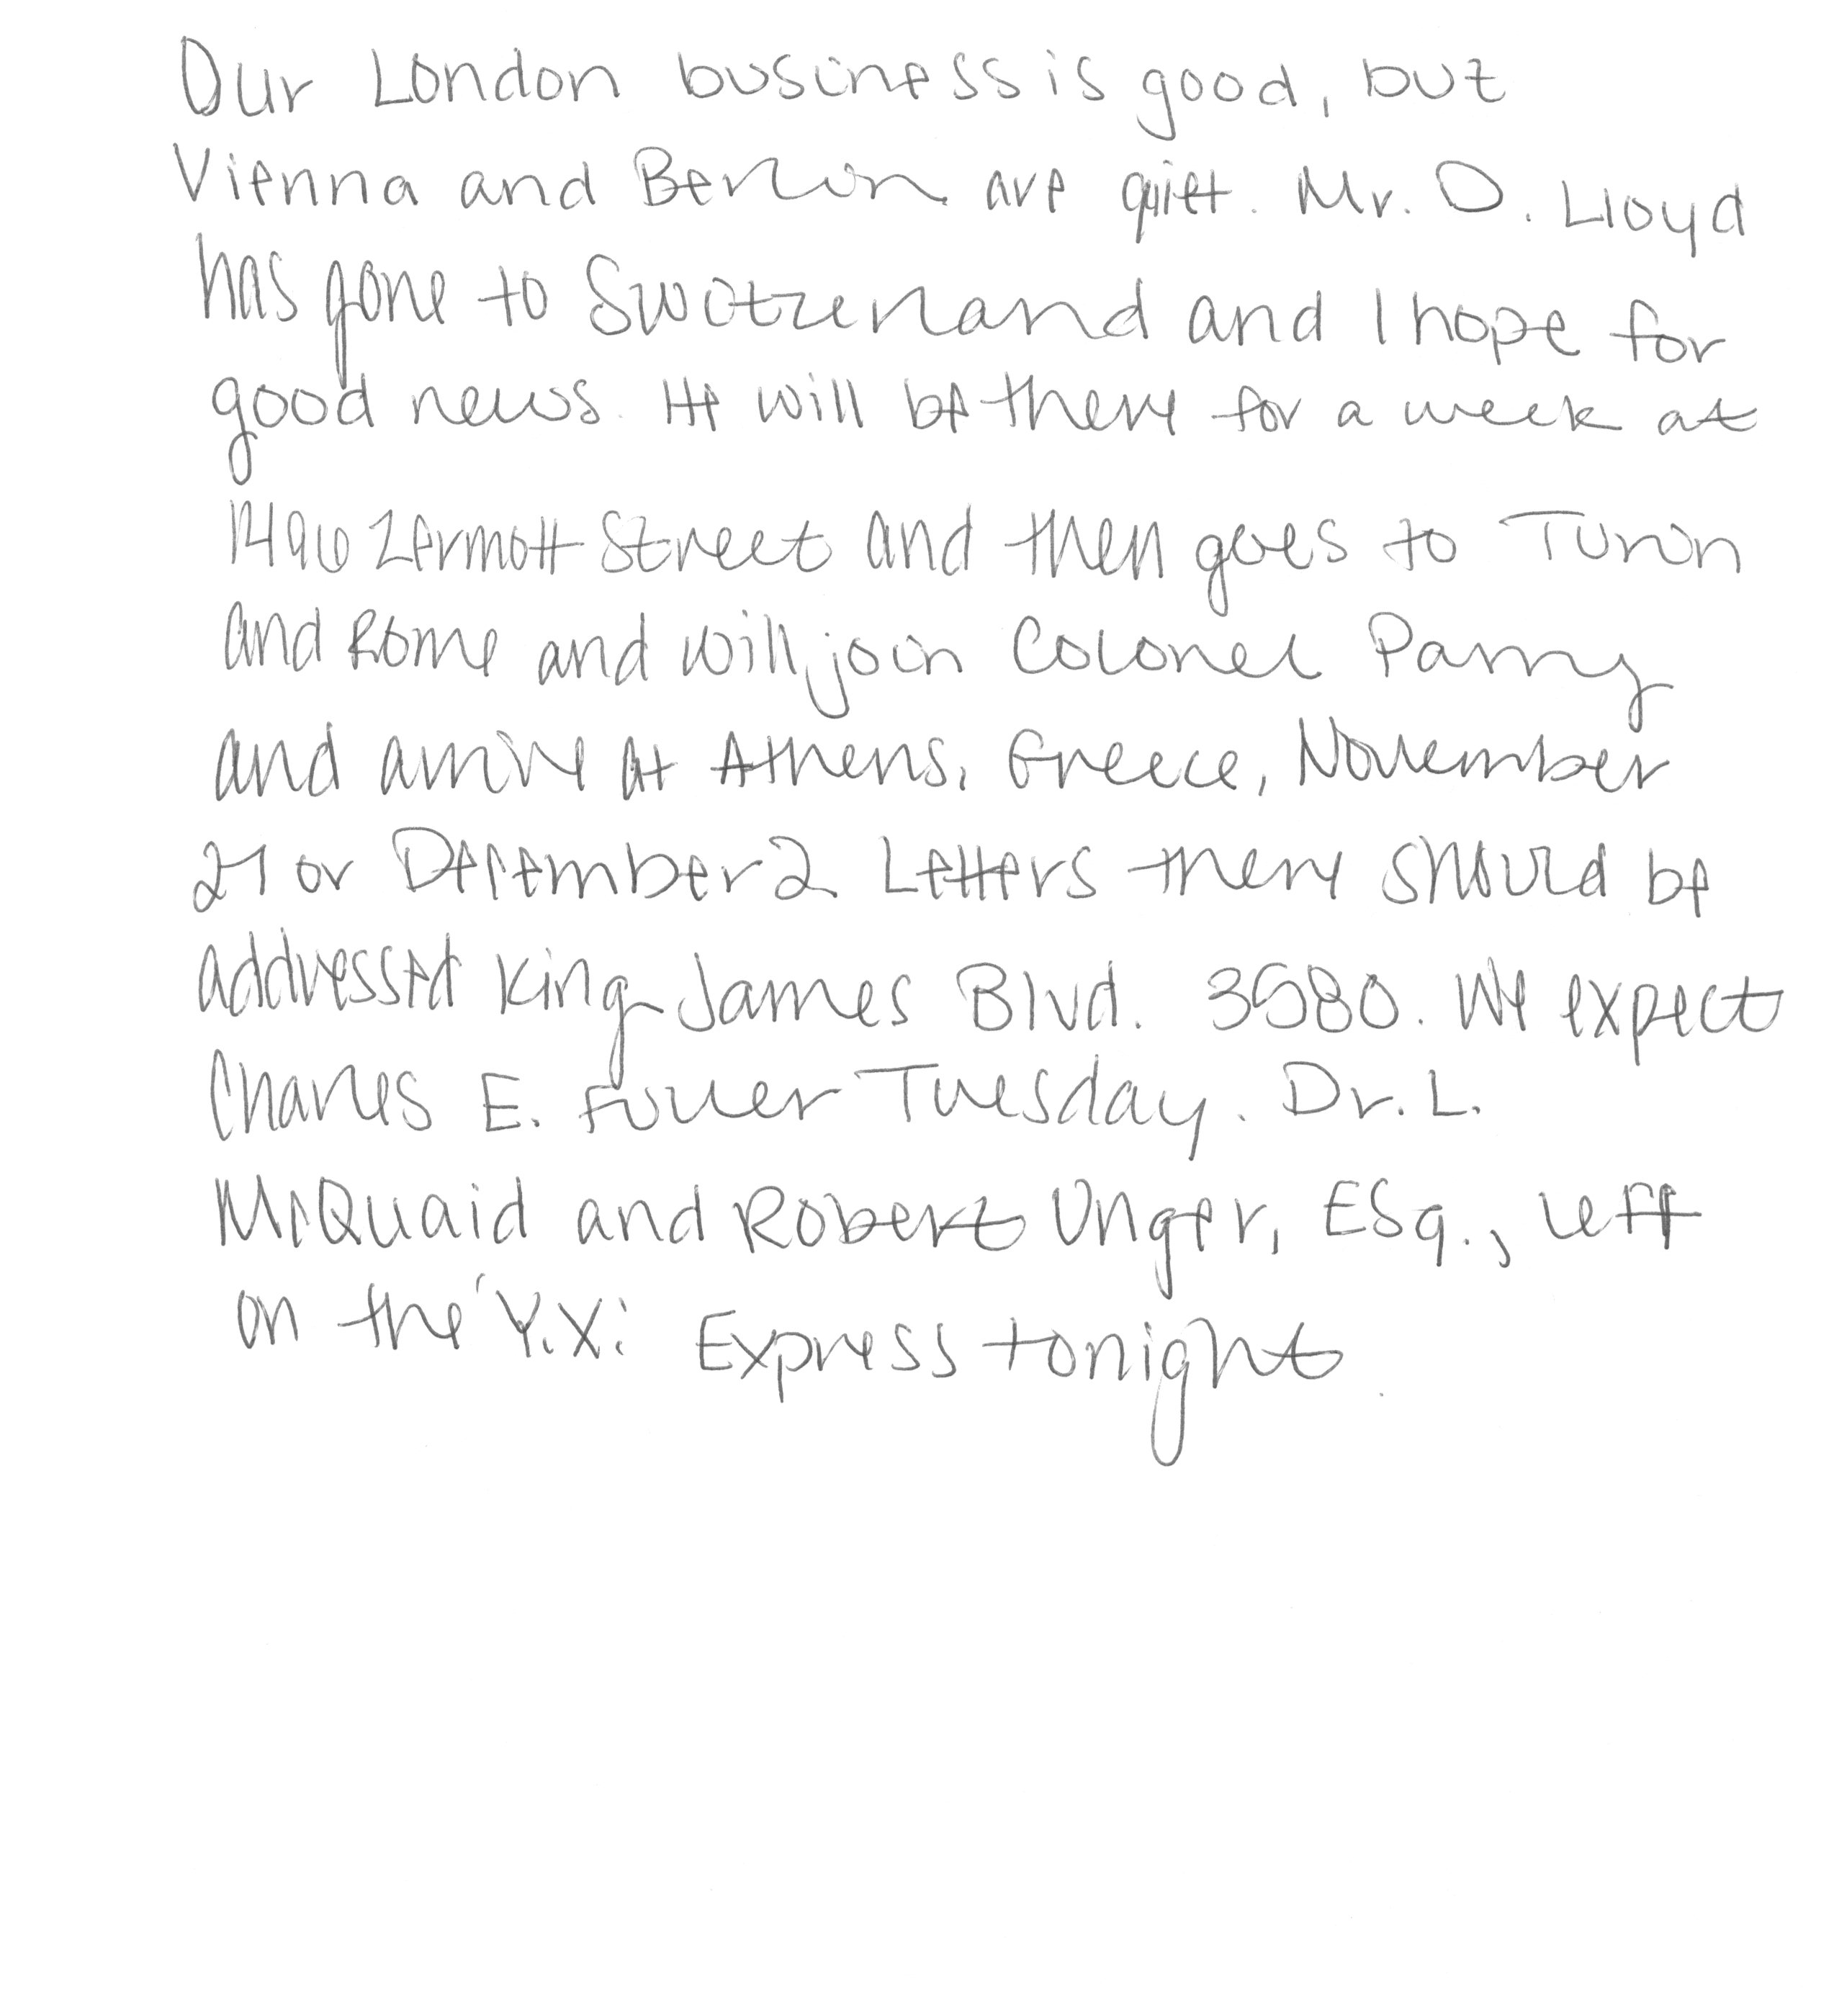 Our London business is good, but
Vienna and Berlin are quiet. Mr. D. Lloyd
has gone to Switzerland and I hope for
good news. He will be there for a week at
1496 Zermott Street and then goes to Turin
and Rome and will join Colonel Parry
and arrive at Athens, Greece, November
27 or December 2. Letters there should be
addressed King James Blvd. 3580. We expect
Charles E. Fuller Tuesday. Dr. L.
McQuaid and Robert Unger, Esq., left
on the 'Y.X.' Express tonight.